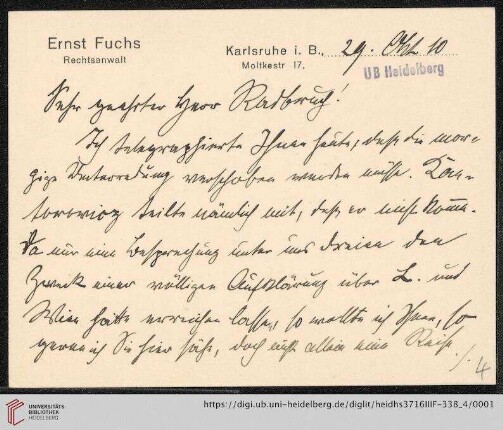 Ernst Fuchs
Rechtsanwalt
Karlsruhe i. B., 29. Okt. 10
Moltkestr 17.
UB Heidelberg
Sehr geehrter Herr Radbruch!
Ich telegraphierte Ihnen heute, daß die mor-
gige Unterredung verschoben werden müsse. Kan-
torowicz teilte nämlich mit, daß er nicht komme.
Da nur eine Besprechung unter uns Dreien den
Zweck einer völligen Aufklärung über L. und
Wien hätte erreichen lassen, so wollte ich Ihnen, so
gerne ich Sie hier sähe, doch nicht allein eine Reise
./. 4
UNIVERSITÄTS-
BIBLIOTHEK
HEIDELBERG
https://digi.ub.uni-heidelberg.de/diglit/heidhs3716IIIF-338_4/0001